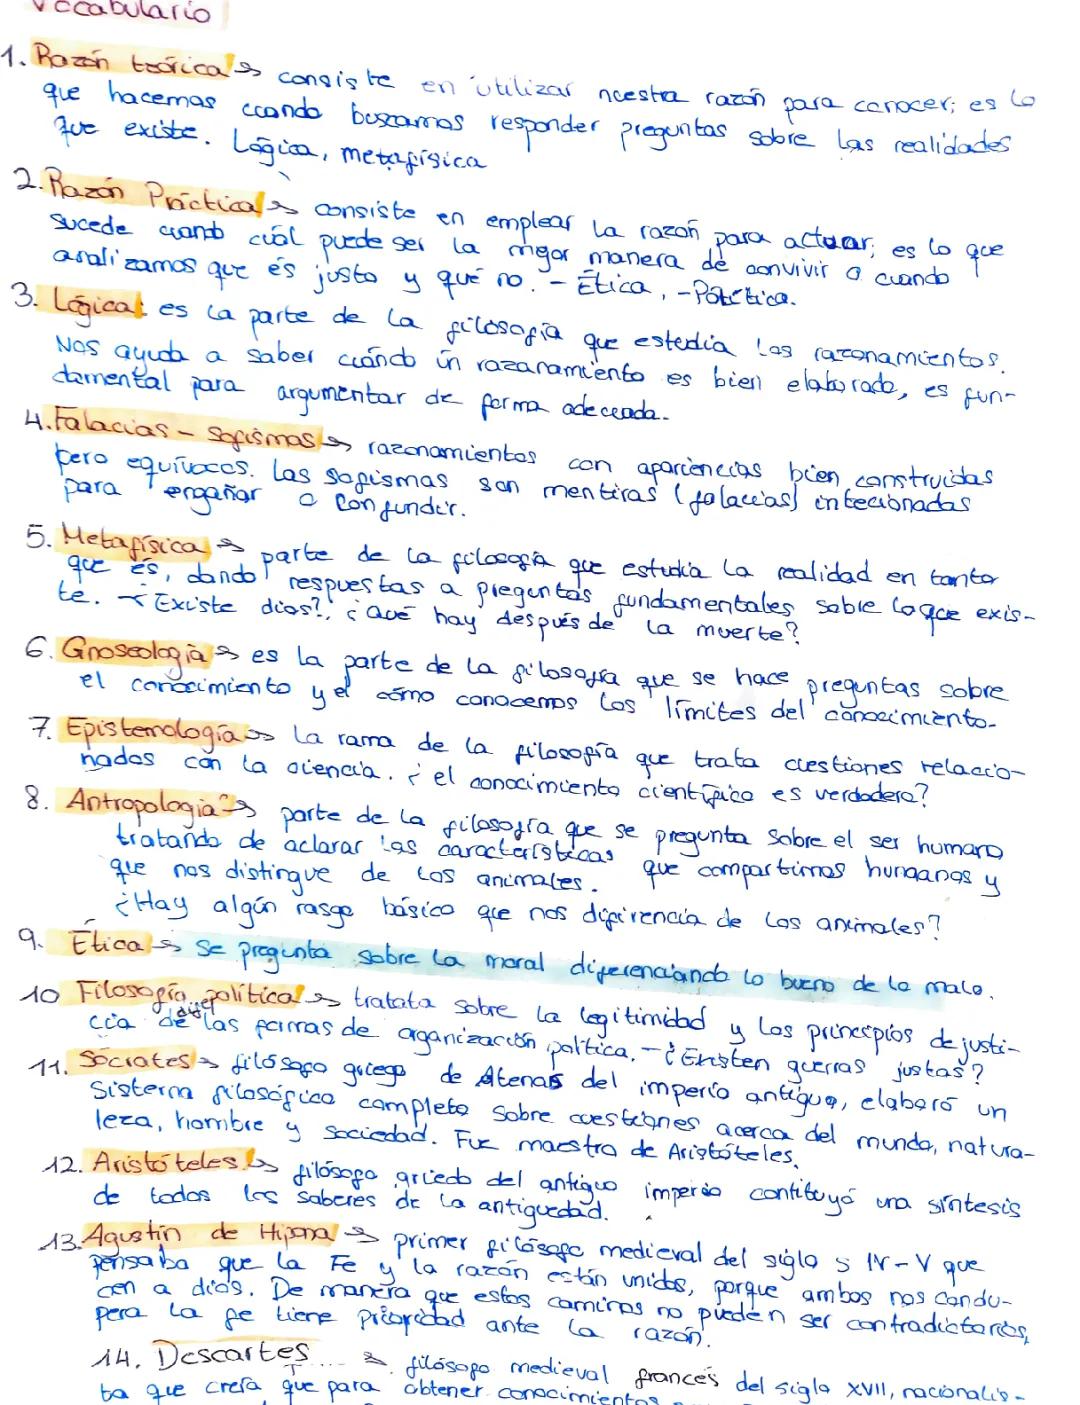 Vocabulario
1. Razón teórica → consiste en utilizar nuestra razón para conocer; es lo
que hacemos cuando buscamos responder preguntas sobre las realidades
que existe. Lógica, metafísica
2. Razón Práctica → consiste en emplear la razón para actuar; es lo que
sucede cuando cuál puede ser la mejor manera de convivir o cuando
analizamos que és justo y qué no. - Ética, - Política.
3. Lógica: es la parte de la filosofía que estudia los razonamientos.
Nos ayuda a saber cuándo un razonamiento es bien elaborado, es fun-
damental para argumentar de forma adecuada.
4. Falacias - Sofismas → razonamientos con apariencias bien construidas
pero equívocos. Las sofismas son mentiras (falacias) intecionadas
para engañar o confundir.
5. Metafísica → parte de la filosofía que estudia la realidad en tanto
que és, dando respuestas a preguntas fundamentales sobre lo que exis-
te. - ¿Existe dios?, ¿Qué hay después de la muerte?
6. Gnoseología → es la parte de la filosofía que se hace preguntas sobre
el conocimiento y el cómo conocemos los límites del conocimiento.
7. Epistemología → la rama de la filosofía que trata cuestiones relacio-
nados con la ciencia. ¿el conocimiento científico es verdadero?
8. Antropología → parte de la filosofía que se pregunta sobre el ser humano
tratando de aclarar las características que compartimos humanos y
que nos distingue de los animales.
¿Hay algún rasgo básico que nos difirencia de los animales?
9. Ética → se pregunta sobre la moral diferenciando lo bueno de lo malo.
10 Filosofía política → tratata sobre la legitimidad y los principios de justi-
cia de las formas de organización política. - ¿Existen guerras justas?
11. Sócrates → filósofo griego de Atenas del imperio antiguo, elaboró un
sistema filosófico completo sobre cuestiones acerca del mundo, natura-
leza, hombre y sociedad. Fue maestro de Aristóteles.
12. Aristóteles → filósofo griedo del antiguo imperio contituyó una síntesis
de todos los saberes de la antiguedad.
13. Agustín de Hipona → primer filósofo medieval del siglo s IV - V que
pensaba que la Fe y la razón están unidos, porque ambos nos condu-
cen a dios. De manera que estos caminos no pueden ser contradictorios,
pero la fe tiene prioridad ante la razón.
14. Descartes → filósofo medieval francés del siglo XVII, racionalis-
ta que creía que para obtener conocimientos